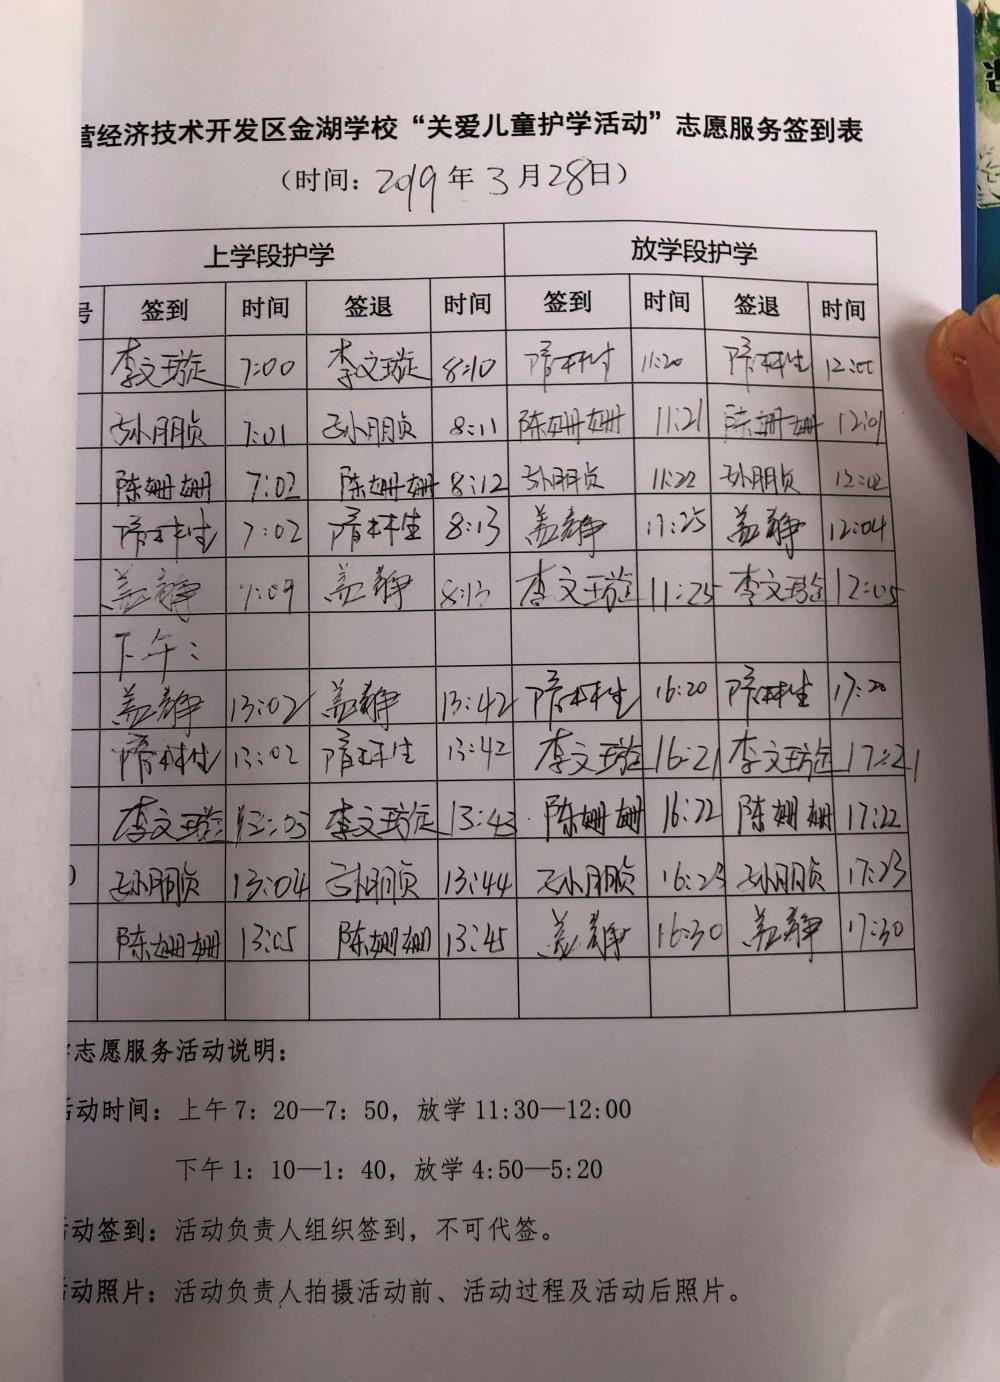 营经济技术开发区金湖学校“关爱儿童护学活动”志愿服务签到表
（时间：2019年3月28日）
上学段护学 放学段护学
号 签到 时间 签退 时间 签到 时间 签退 时间
李文璇 7:00 李文璇 8:10 隋林生 11:20 隋林生 12:00
孙朋贞 7:01 孙朋贞 8:11 陈姗姗 11:21 陈姗姗 12:01
陈姗姗 7:02 陈姗姗 8:12 孙朋贞 11:22 孙朋贞 12:02
隋林生 7:02 隋林生 8:13 盖静 11:25 盖静 12:04
盖静 7:09 盖静 8:13 李文璇 11:25 李文璇 12:05
下午：
盖静 13:02 盖静 13:42 隋林生 16:20 隋林生 17:20
隋林生 13:02 隋林生 13:42 李文璇 16:21 李文璇 17:21
李文璇 13:03 李文璇 13:43 陈姗姗 16:22 陈姗姗 17:22
孙朋贞 13:04 孙朋贞 13:44 孙朋贞 16:23 孙朋贞 17:23
陈姗姗 13:05 陈姗姗 13:45 盖静 16:30 盖静 17:30
志愿服务活动说明：
活动时间：上午7：20—7：50，放学11:30—12:00
下午1：10—1：40，放学4:50—5:20
活动签到：活动负责人组织签到，不可代签。
活动照片：活动负责人拍摄活动前、活动过程及活动后照片。